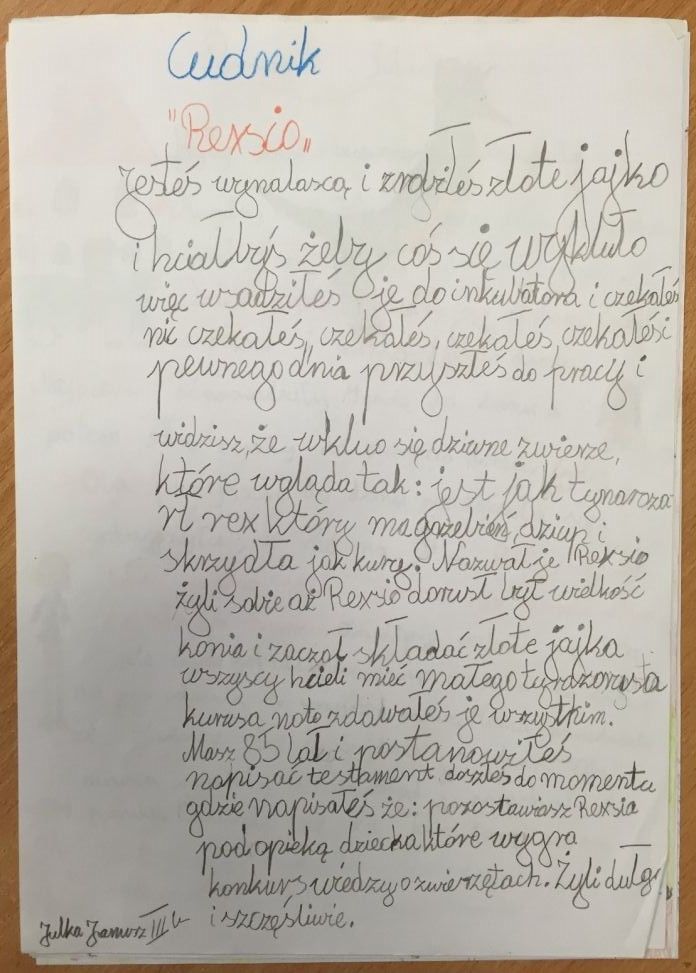 Cudnik
"Rexsio„
Jesteś wynalascą i zrobiłeś złote jajko
i hciałbyś żeby coś się wykluło
więc wsadziłeś je do inkubatora i czekałeś
nic czekałeś, czekałeś, czekałeś, czekałeś i
pewnego dnia przyszłeś do pracy i
widzisz, że wkluo się dziwne zwierze,
które wgląda tak: jest jak tynaroza
rł rex który ma grzebień, dziup i
skrzydła jak kury. Nazwał je Rexsio
żyli sobie aż Rexsio dorusł był wielkość
konia i zaczoł składać złote jajka
wszyscy hcieli mieć małego tyrdzorysta
kurusa noto zdawałeś je wszystkim.
Masz 85 lał i postanowiłeś
napisać testament doszłeś do momentu
gdzie napisałeś że: pozostawiasz Rexsia
pod opieką dziecka które wygra
konkurs wiedzy o zwierzętach. Żyli dułgo
i szczęśliwie.
Julka Janusz III b